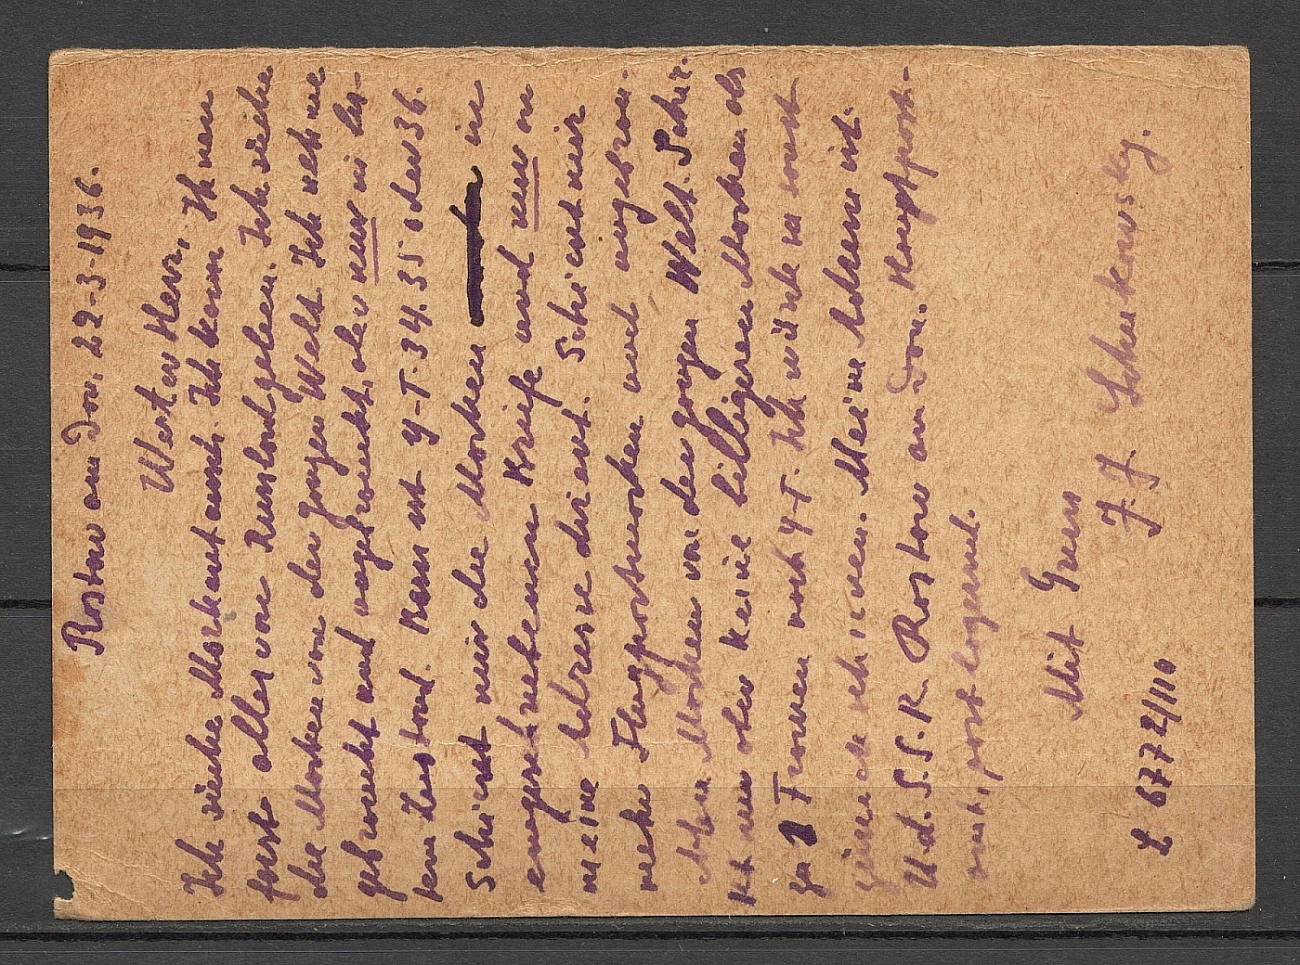 Rostow am Don, 22-3-1936.
Werter Herr,
Ich suche Markentausch. Ich kann Ihnen
fast alles von Russland geben. Ich suche
die Marken von der ganzen Welt. Ich nehme
gebraucht und ungebraucht, aber nur in bes-
tem Zustand. Mann ist Y-T. 34. 35 oder 36.
Schickt mir die Marken in
eingeschriebenem Briefe und nur an
meine Adresse direct. Schickt mir
mehr Flugpostmarken und ungebrau.
Marken von der ganzen Welt. Schic.
kt nur aber keine billigeren Marken als
ja 1 Franken nach Y-T. Ich würde so sonst
zurück schicken. Meine Adresse ist:
U.d.S.S.R. Rostow am Don. Hauptpost-
amt, postlagernd.
Mit Gruss
J. J. Schukowsky.
L 6772/110